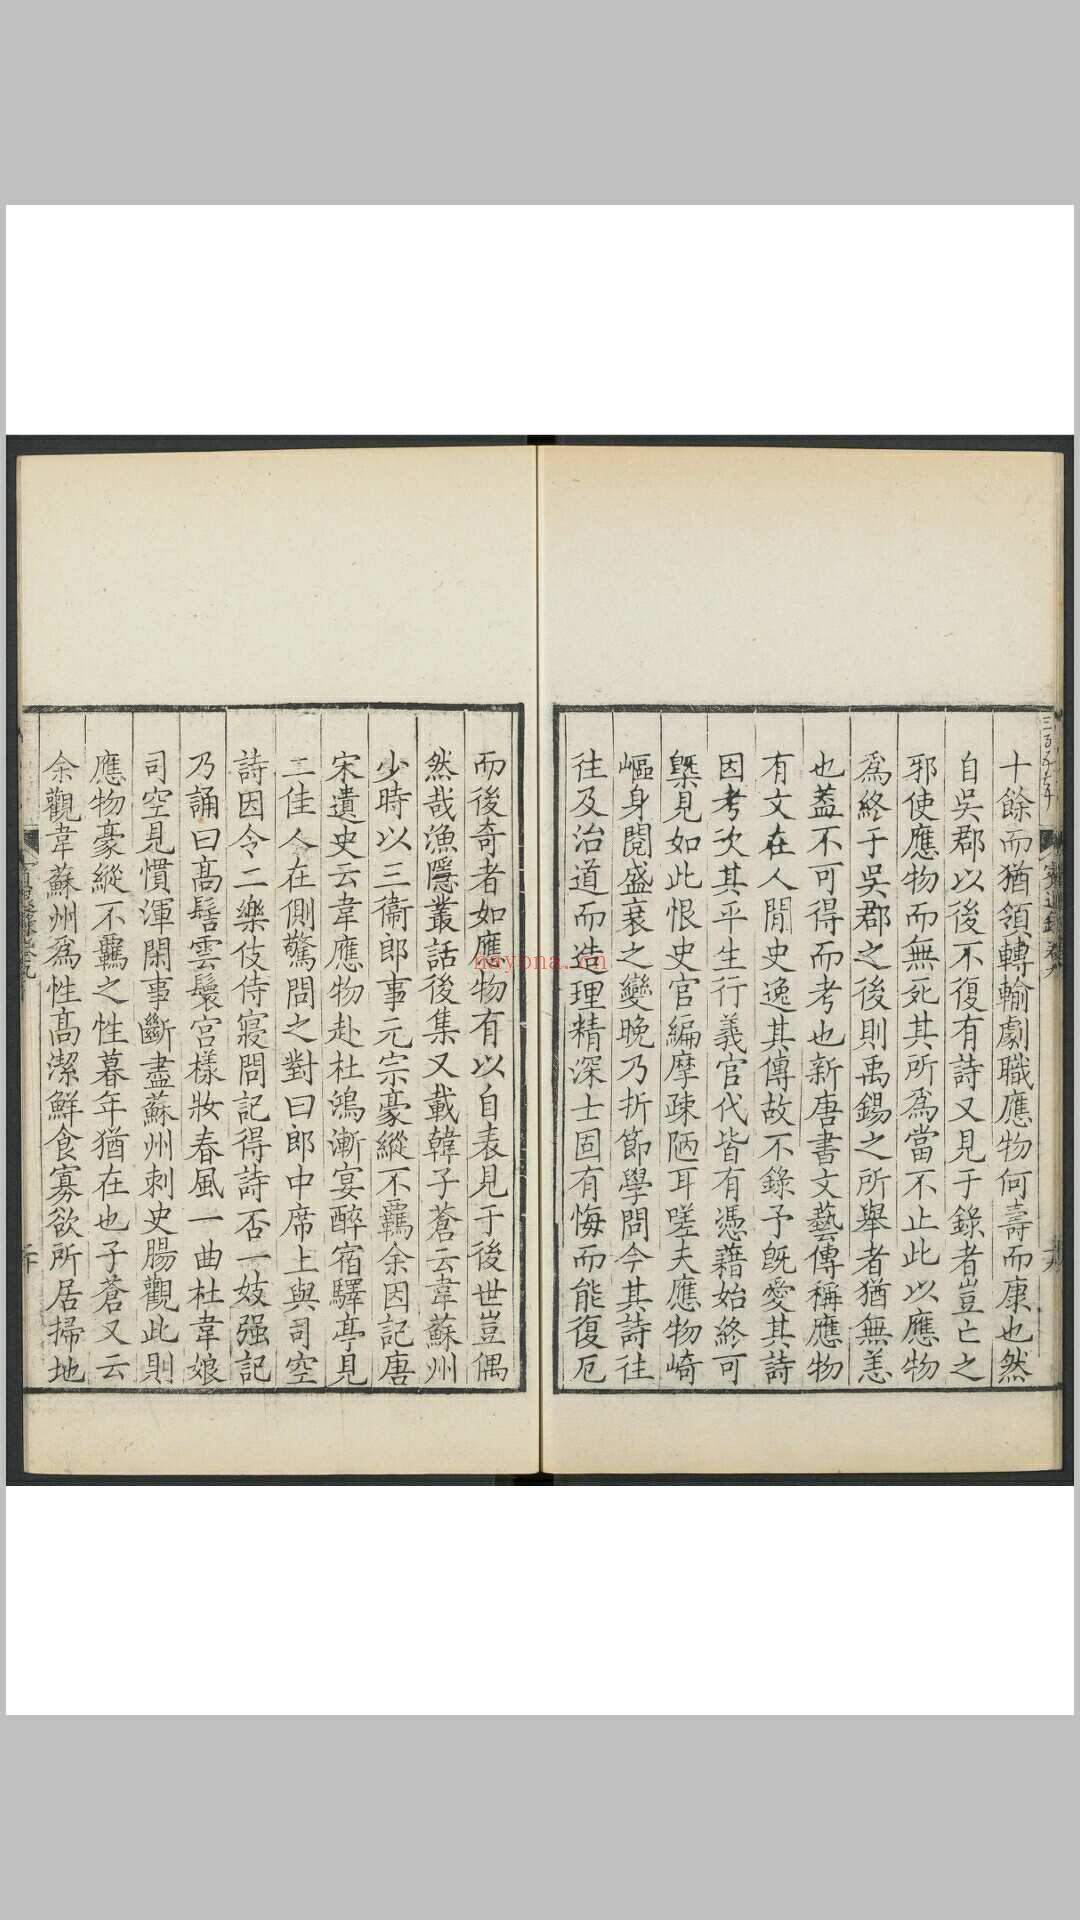 十餘而猶領轉輸劇職應物何壽而康也然
自吳郡以後不復有詩又見于錄者豈亡之
邪使應物而無死其所爲當不止此以應物
爲終于吳郡之後則禹錫之所舉者猶無恙
也蓋不可得而考也新唐書文藝傳稱應物
有文在人間史逸其傳故不錄予既愛其詩
因考次其平生行義官代皆有憑藉始終可
槩見如此恨史官編摩疎陋耳嗟夫應物崎
嶇身閱盛衰之變晚乃折節學問今其詩往
往及治道而造理精深士固有悔而能復厄
而後奇者如應物有以自表見于後世豈偶
然哉漁隱叢話後集又載韓子蒼云韋蘇州
少時以三衞郎事元宗豪縱不羈余因記唐
宋遺史云韋應物赴杜鴻漸宴醉宿驛亭見
二佳人在側驚問之對曰郎中席上與司空
詩因令二樂伎侍寢問記得詩否一妓强記
乃誦曰髙髻雲鬟宮樣妝春風一曲杜韋娘
司空見慣渾閑事斷盡蘇州刺史腸觀此則
應物豪縱不羈之性暮年猶在也子蒼又云
余觀韋蘇州爲性髙潔鮮食寡欲所居掃地
nayona.cn